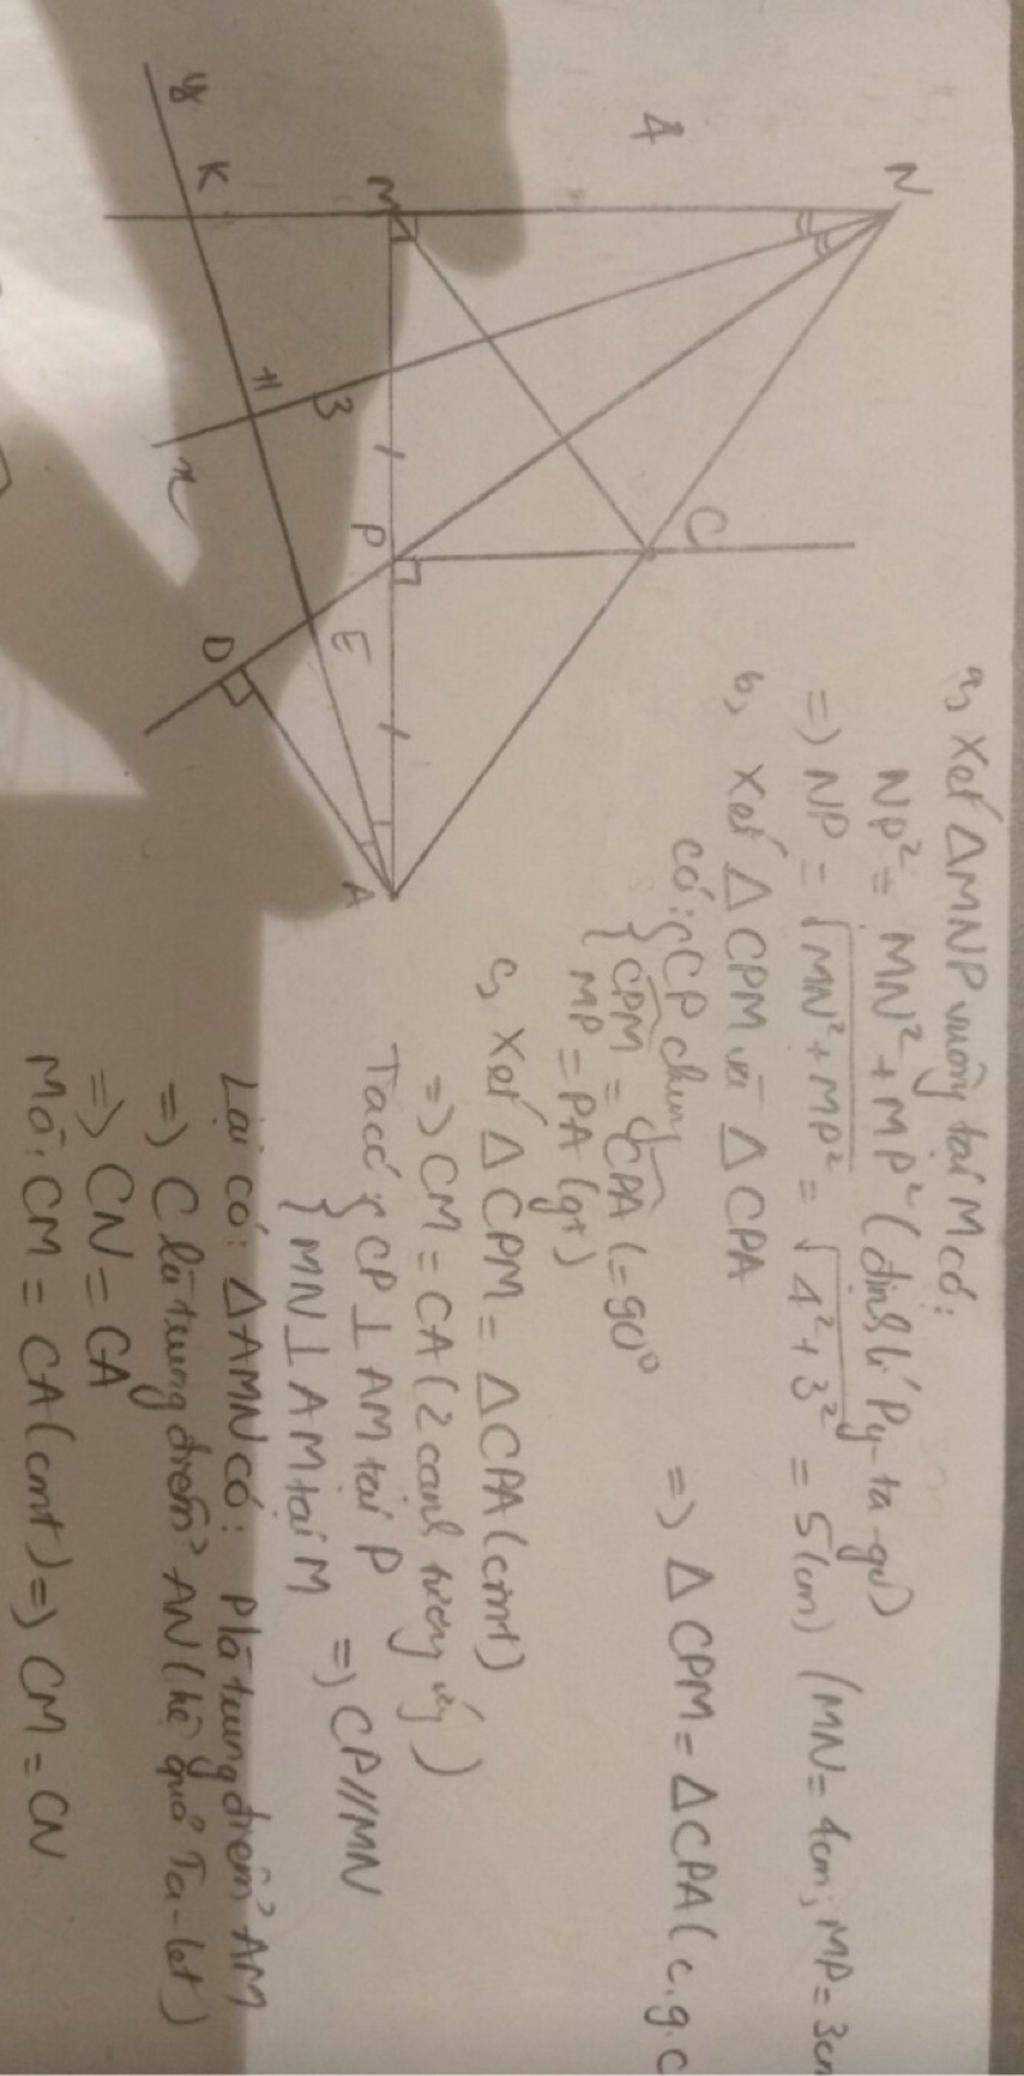 N
4
M
K
y
H
3
x
P
C
E
D
A
a, Xét ΔMNP vuông tại M có:
NP² = MN² + MP² (định lí Py-ta-go)
=) NP = √MN²+MP² = √4²+3² = 5 (cm) (MN = 4cm; MP = 3cm
b, Xét Δ CPM và Δ CPA
có: { CP chung
CPM = CPA (=90°
MP = PA (gt)
=) Δ CPM = Δ CPA (c.g.c
c, Xét Δ CPM = Δ CPA (cmt)
=) CM = CA (2 cạnh tương ứng)
Ta có { CP ⊥ AM tại P
MN ⊥ AM tại M
=) CP // MN
Lại có: Δ AMN có: P là trung điểm AM
=) C là trung điểm AN (hệ quả Ta-let)
=) CN = CA
Mà: CM = CA (cmt) =) CM = CN